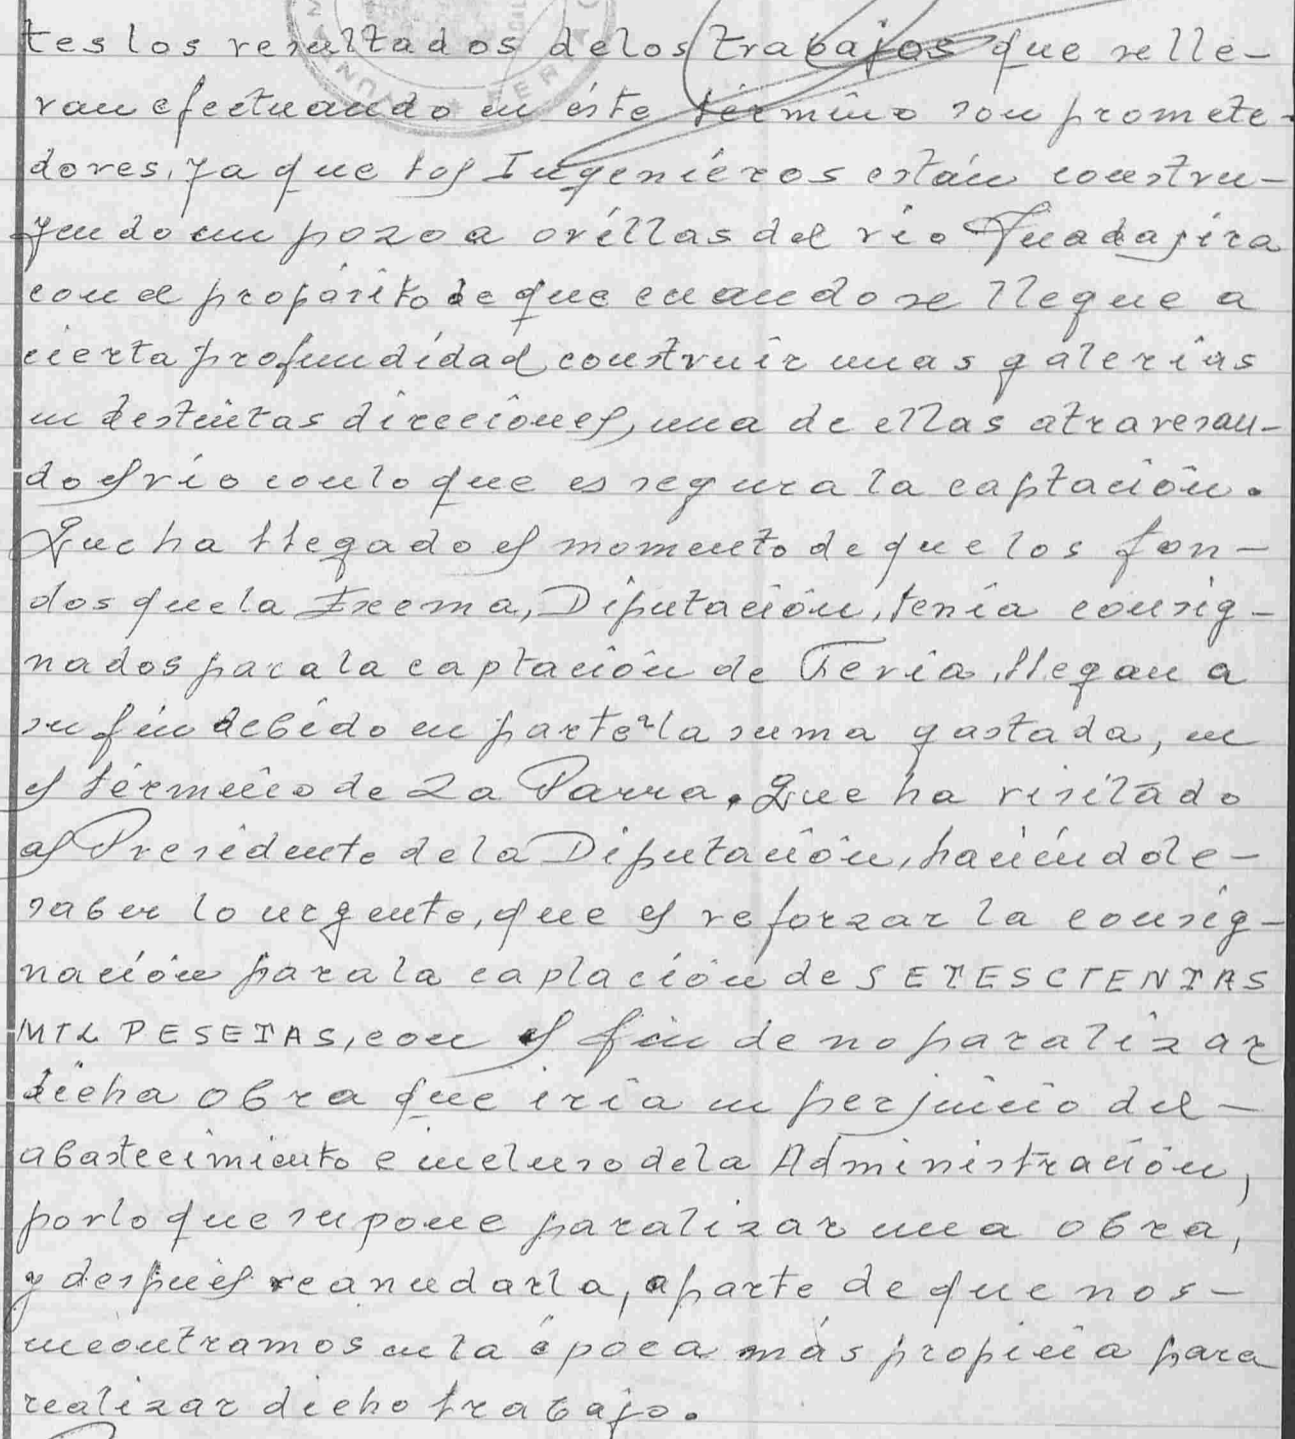 tes los resultados de los trabajos que se lle-
van efectuando en éste término son promete-
dores, ya que los Ingeniéros están constru-
yendo un pozo a oríllas del río Guadajira
con el propósito de que cuando se llegue a
cierta profundidad construir unas galerías
en destintas direcciones, una de ellas atravesan-
do el río con lo que es segura la captación.
Que ha llegado el momento de que los fon-
dos que la Excma, Diputación, tenía consig-
nados para la captación de Feria, llegan a
su fin debído en parte a la suma gastada, en
el término de La Parra. Que ha visitado
al Presidente de la Diputación, haciéndole-
saber lo urgente, que es reforzar la consig-
nación para la captación de SETESCIENTAS
MIL PESETAS, con el fin de no paralizar
dicha obra que iría en perjuicio del-
abastecimiento e incluso de la Administración,
por lo que supone paralizar una obra,
y después reanudarla, aparte de que nos-
encontramos en la época más propicia para
realizar dicho trabajo.